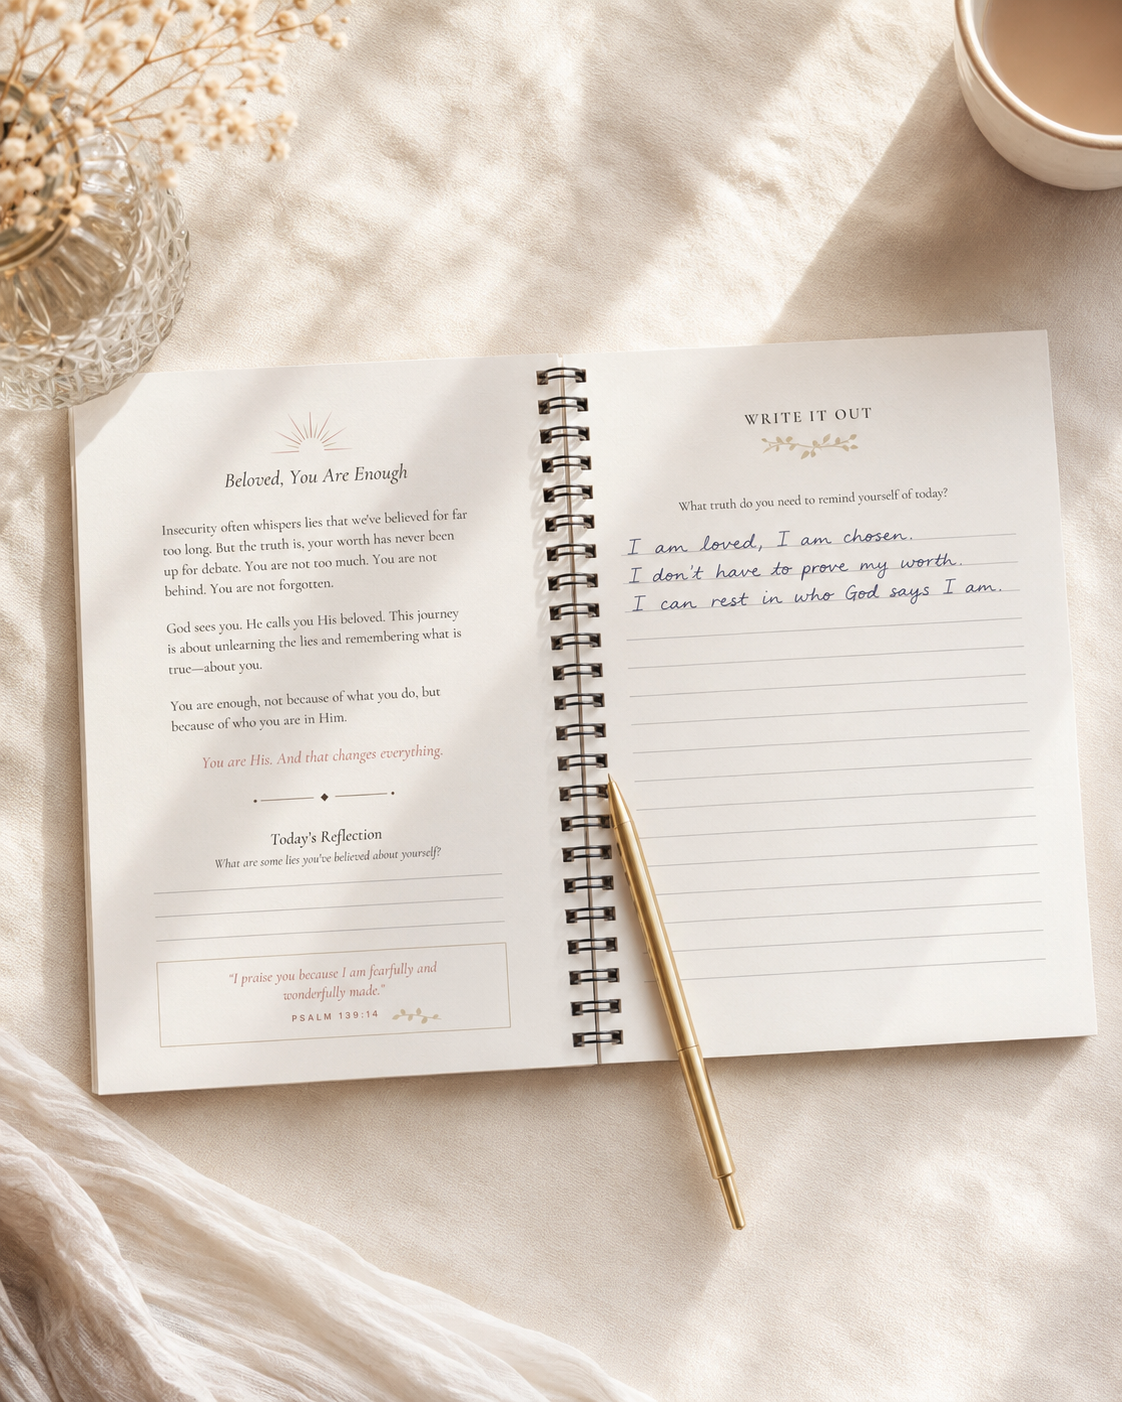 Beloved, You Are Enough
Insecurity often whispers lies that we've believed for far
too long. But the truth is, your worth has never been
up for debate. You are not too much. You are not
behind. You are not forgotten.
God sees you. He calls you His beloved. This journey
is about unlearning the lies and remembering what is
true—about you.
You are enough, not because of what you do, but
because of who you are in Him.
You are His. And that changes everything.
Today's Reflection
What are some lies you've believed about yourself?
"I praise you because I am fearfully and
wonderfully made."
PSALM 139:14
WRITE IT OUT
What truth do you need to remind yourself of today?
I am loved, I am chosen.
I don't have to prove my worth.
I can rest in who God says I am.